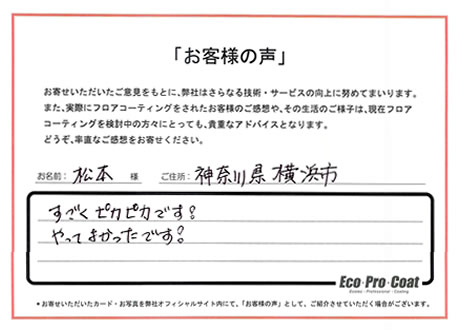 「お客様の声」
お寄せいただいたご意見をもとに、弊社はさらなる技術・サービスの向上に努めてまいります。
また、実際にフロアコーティングをされたお客様のご感想や、その生活のご様子は、現在フロア
コーティングを検討中の方々にとっても、貴重なアドバイスとなります。
どうぞ、率直なご感想をお寄せください。
お名前： 松本 様 ご住所： 神奈川県横浜市
すごくピカピカです！
やってよかったです！
Eco・Pro・Coat
＊お寄せいただいたカード・お写真を弊社オフィシャルサイト内にて、「お客様の声」として、ご紹介させていただく場合がございます。